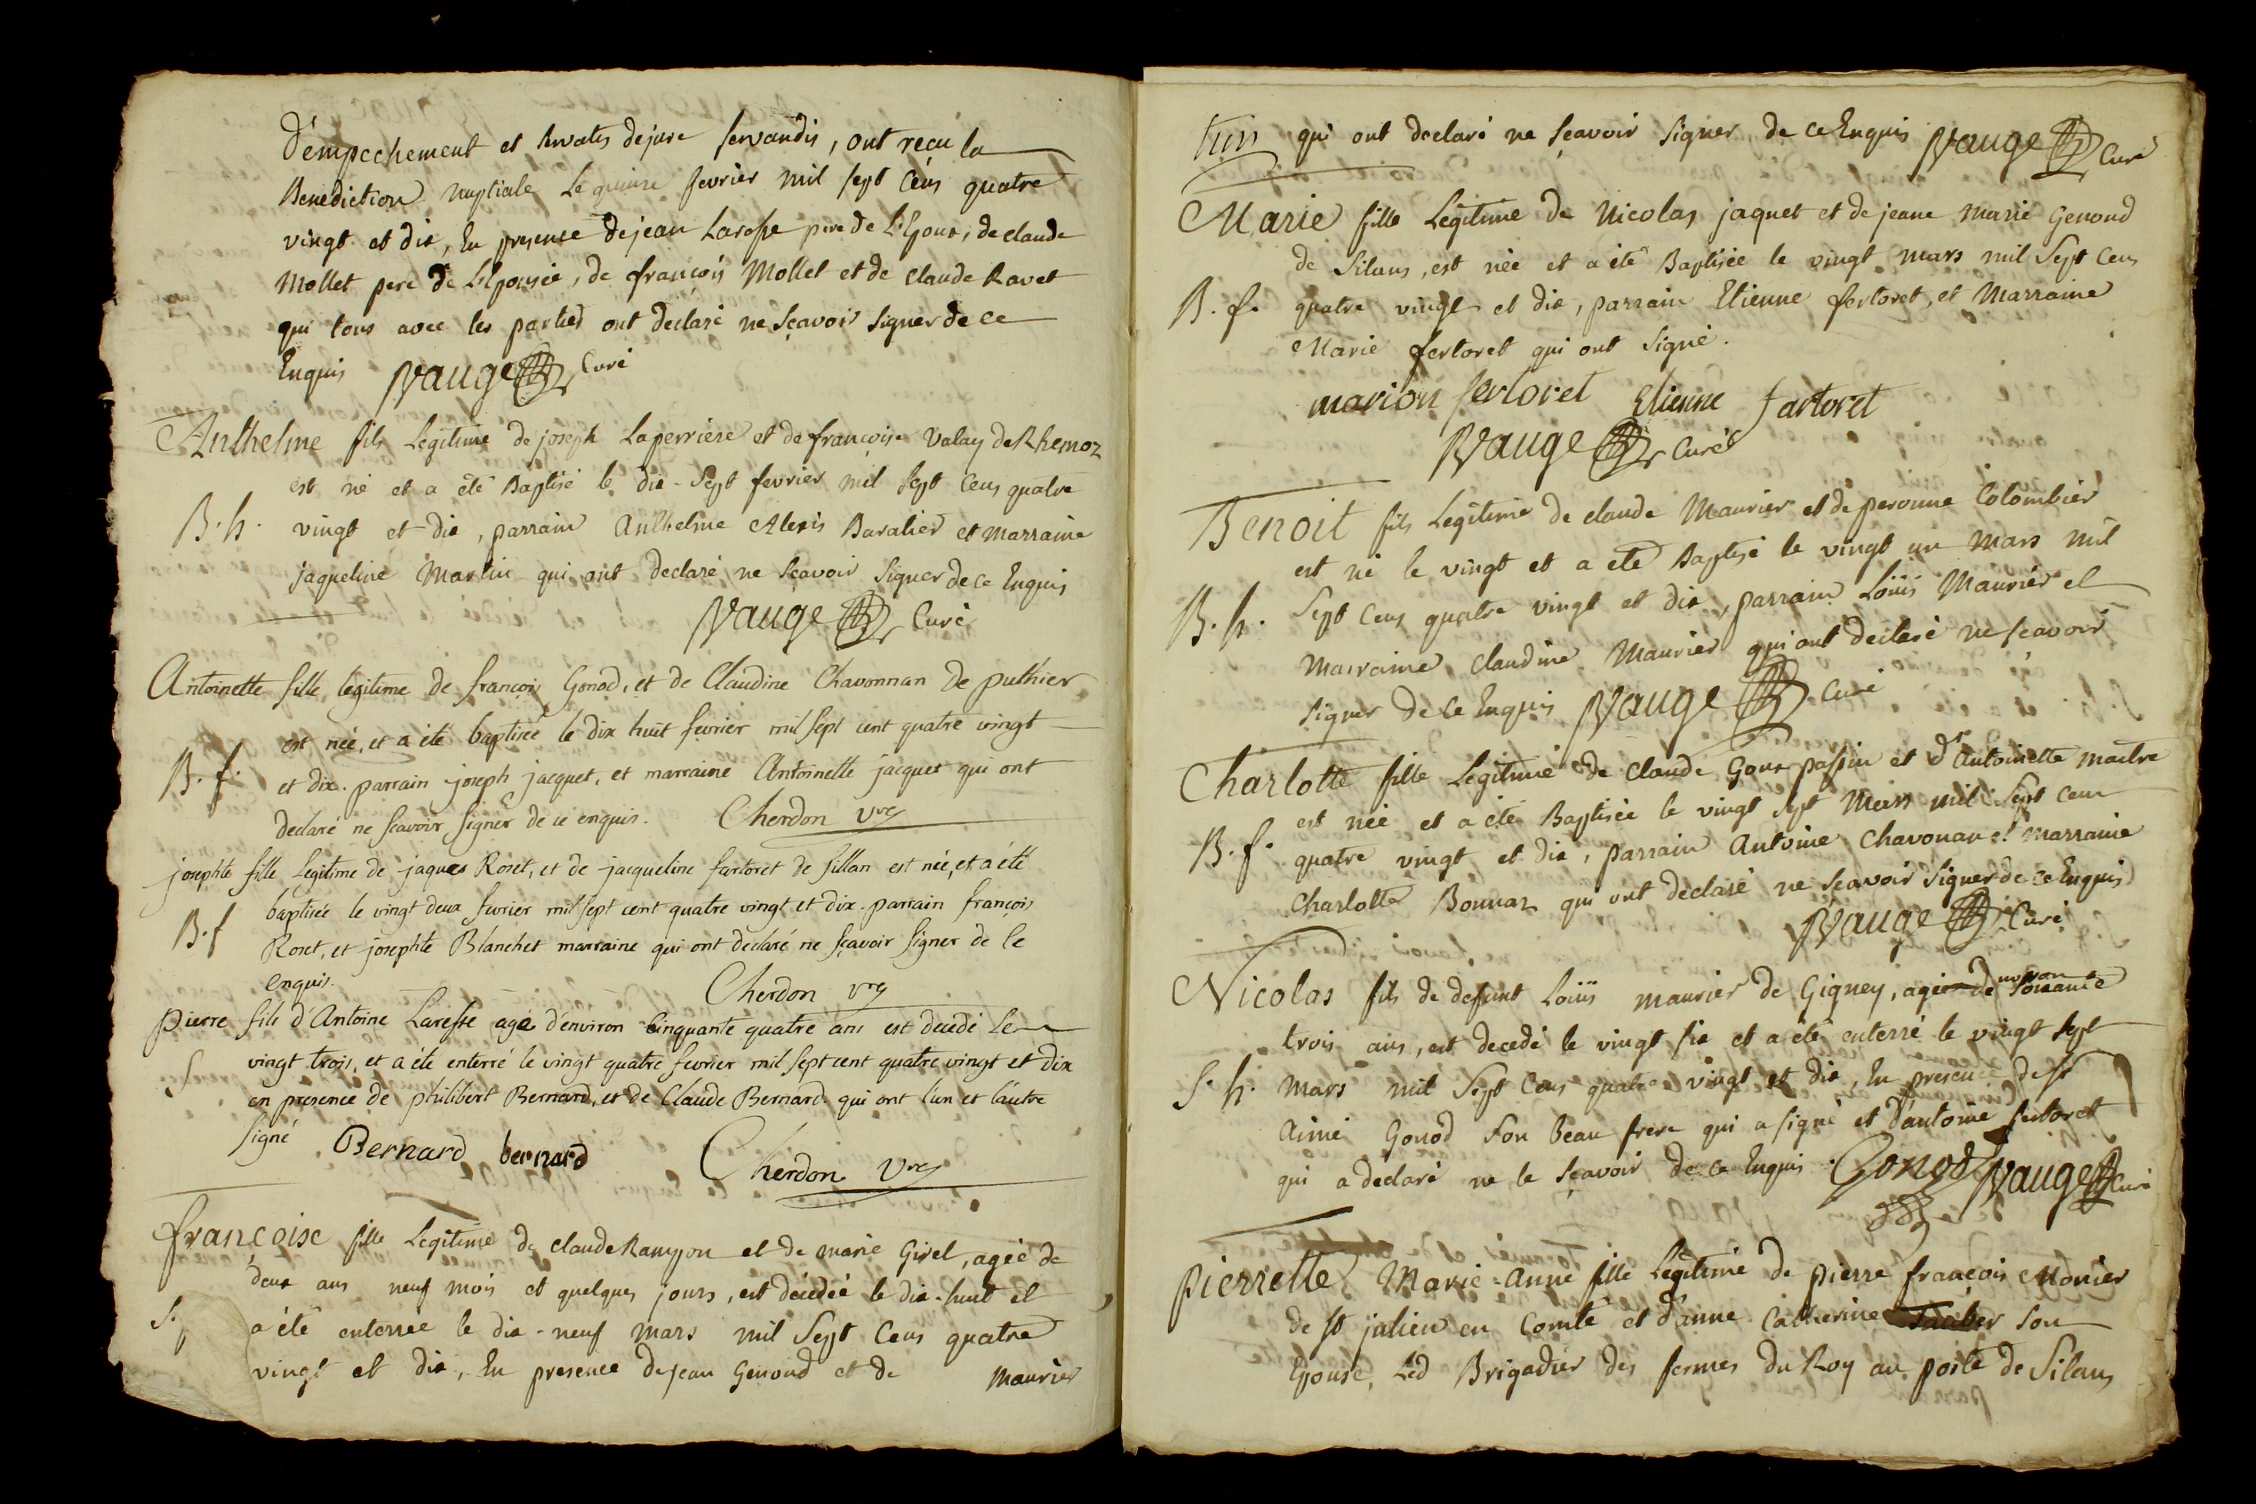 D'empechement et servatis dejure servandis, ont recu la
Benediction nuptiale le quinze fevrier mil sept cens quatre
vingt et dix, En presence dejean Larosse pere de L'Epoux, de claude
Mollet pere de L'Epousée, de françois Mollet et de claude Ravet
qui tous avec les parties ont declaré ne sçavoir signer de ce
Enquis Vauge Curé
Anthelme fils Legitime de joseph Laperriere et de françoise Valay de Rhemoz
est né et a été Baptisé le dix-sept fevrier mil sept cens quatre
B. h. vingt et dix, parrain Anthelme Alexis Baralier et marraine
jaqueline Martin qui ont declaré ne sçavoir signer de ce Enquis
Vauge Curé
Antoinette fille legitime de françois Gonod, et de Claudine Chavonnan de puthier
est née, et a été baptisée le dix huit fevrier mil sept cent quatre vingt
B. f. et dix. parrain joseph jacquet, et marraine Antoinette jacquet qui ont
declaré ne sçavoir signer de ce enquis. Cherdon vre
josephte fille legitime de jaques Roset, et de jacqueline fartoret de sillan est née, et a été
baptisée le vingt deux fevrier mil sept cent quatre vingt et dix. parrain françois
B. f Roset, et josephte Blanchet marraine qui ont declaré ne sçavoir signer de ce
enquis. Cherdon vre
pierre fils d'Antoine Laresse agé d'environ cinquante quatre ans est decedé le
vingt trois, et a été enterré le vingt quatre fevrier mil sept cent quatre vingt et dix
S en presence de philibert Bernard, et de Claude Bernard qui ont l'un et l'autre
signé Bernard bernard Cherdon Vre
françoise fille Legitime de claude Rampon et de marie Girel, agée de
deux ans neuf mois et quelques jours, est décedée le dix-huit et
S. a été enterrée le dix-neuf mars mil sept cens quatre
vingt et dix, En presence de jean Genoud et de Maurier
qui ont declaré ne sçavoir signer, de ce Enquis Vauge Curé
Marie fille Legitime de Nicolas jaquet et de jeane marie Genoud
de Silans, est née et a été Baptisée le vingt mars mil sept cens
B. f. quatre vingt et dix, parrain Etienne fertoret, et Marraine
Marie fertoret qui ont signé.
marion fertoret Etienne fartoret
Vauge Curé
Benoit fils Legitime de claude Maurier et de peronne Colombier
est né le vingt et a été Baptisé le vingt un mars mil
B. h. sept cens quatre vingt et dix, parrain Loüis Maurier et
Marraine claudine Maurier qui ont declaré ne sçavoir
signer de ce Enquis Vauge Curé
Charlotte fille Legitime de claude Goux passin et d'Antoinette maitre
est née et a été Baptisée le vingt sept Mars mil sept cens
B. f. quatre vingt et dix, parrain Antoine Chavonan et marraine
Charlotte Bonnaz qui ont declaré ne sçavoir signer de ce Enquis
Vauge Curé
Nicolas fils de defunt Loüis maurier de Gigney, agé d'environ soixante
trois ans, est decedé le vingt six et a été enterré le vingt sept
S. h. mars mil sept cens quatre vingt et dix, En presence de sr
Aimé Gonod son beau frere qui a signé et d'antoine fertoret
qui a declaré ne le sçavoir de ce Enquis. Gonod Vauge Curé
pierrette Marie-Anne fille Legitime de pierre françois Monier
de st julien en Comté et d'anne Catherine son
Epouse, Led Brigadier des fermes du Roy au poste de Silans